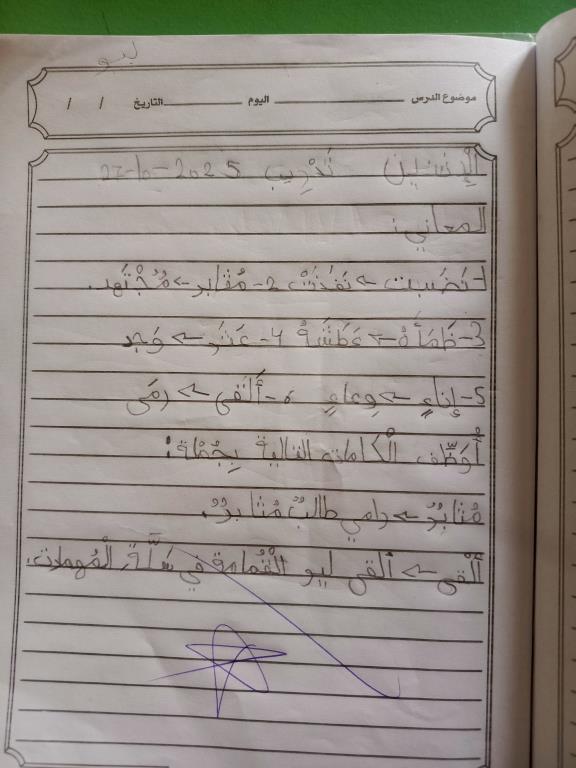 ليو
موضوع الدرس اليوم التاريخ / /
الإثنين تَدْرِيب 27-10-2025
المعاني:
1-نَضَبت ← نَفَذَتْ 2- مُثابر ← مُجْتَهد.
3- ظَمَأَهُ ← عَطَشَهُ 4- عَثَرَ ← وَجد
5- إناءٍ ← وِعاءٍ 6- أَلْقى ← رمَى
أُوَظِّف الْكلمات التالية بِجُمْلة:
مُثابرٌ ← رامي طالبٌ مُثابرٌ.
أَلْقى ← ألقى ليو الْقُمامة في سَلَّة الْمُهملات.